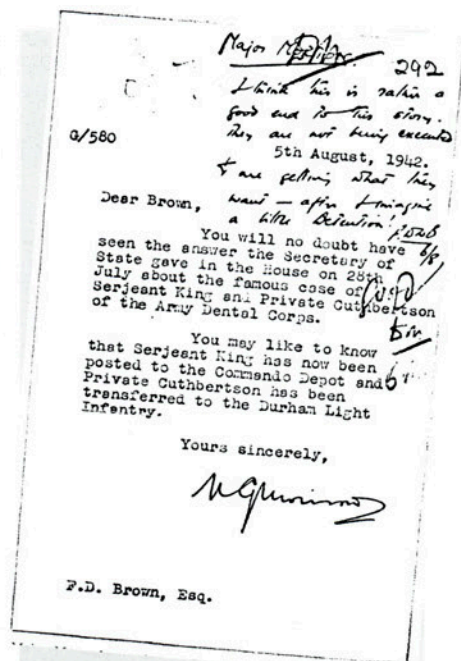 Major
292
I think this is rather a
good end to this story.
They are not being executed
G/580
5th August, 1942.
& are getting what they
want — after I imagine
a little Detention!
Dear Brown,
You will no doubt have
seen the answer the Secretary of
State gave in the House on 28th
July about the famous case of
Serjeant King and Private Cuthbertson
of the Army Dental Corps.
You may like to know
that Serjeant King has now been
posted to the Commando Depot and
Private Cuthbertson has been
transferred to the Durham Light
Infantry.
Yours sincerely,
F.D. Brown, Esq.